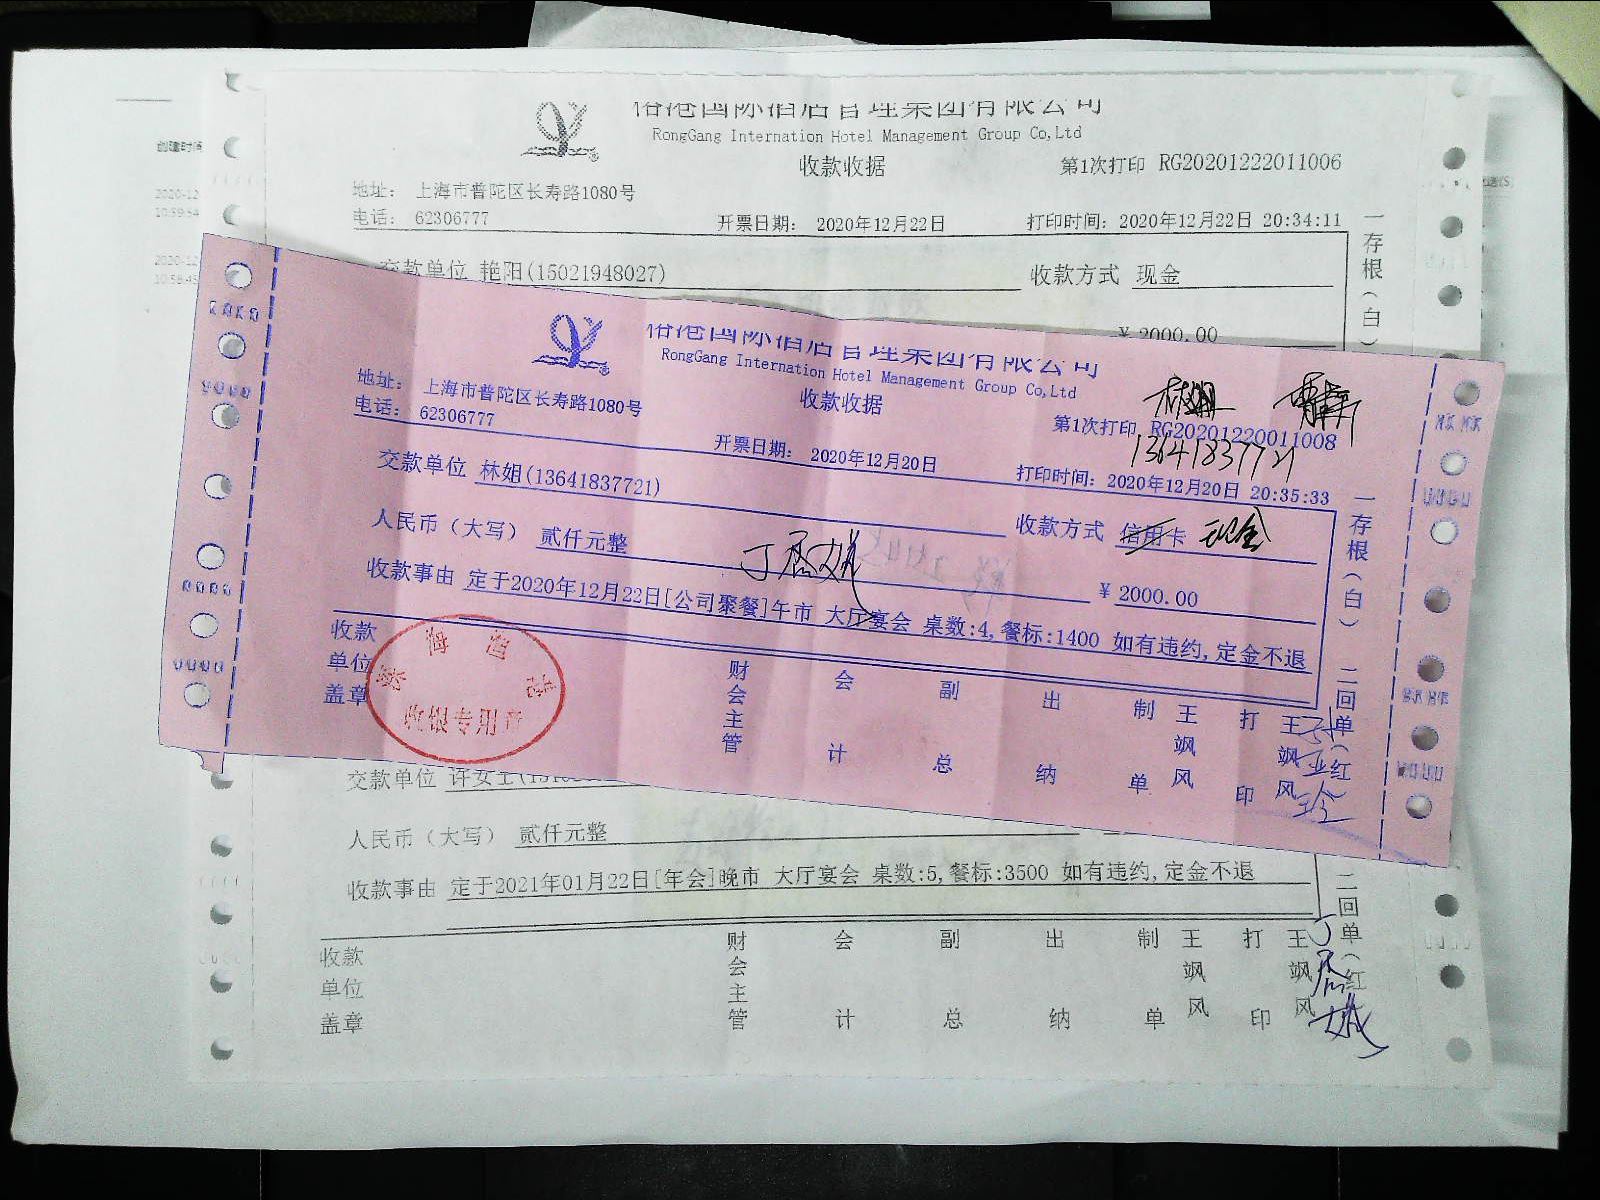 RongGang Internation Hotel Management Group Co,Ltd
收款收据
第1次打印 RG20201222011006
地址: 上海市普陀区长寿路1080号
电话: 62306777
开票日期: 2020年12月22日
打印时间: 2020年12月22日 20:34:11
交款单位 艳阳(15021948027)
收款方式 现金
¥ 2000.00
一存根(白)
RongGang Internation Hotel Management Group Co,Ltd
收款收据
第1次打印 RG20201220011008
13641837721
地址: 上海市普陀区长寿路1080号
电话: 62306777
开票日期: 2020年12月20日
打印时间: 2020年12月20日 20:35:33
交款单位 林姐(13641837721)
收款方式 信用卡 现金
人民币(大写) 贰仟元整
¥ 2000.00
收款事由 定于2020年12月22日[公司聚餐]午市 大厅宴会 桌数:4,餐标:1400 如有违约,定金不退
收款单位盖章
财会主管 会计 副总 出纳 制单 王飒风 打印 王飒风
一存根(白) 二回单(红
交款单位 许女士
人民币(大写) 贰仟元整
收款事由 定于2021年01月22日[年会]晚市 大厅宴会 桌数:5,餐标:3500 如有违约,定金不退
收款单位盖章
财会主管 会计 副总 出纳 制单 王飒风 打印 王飒风
二回单(红